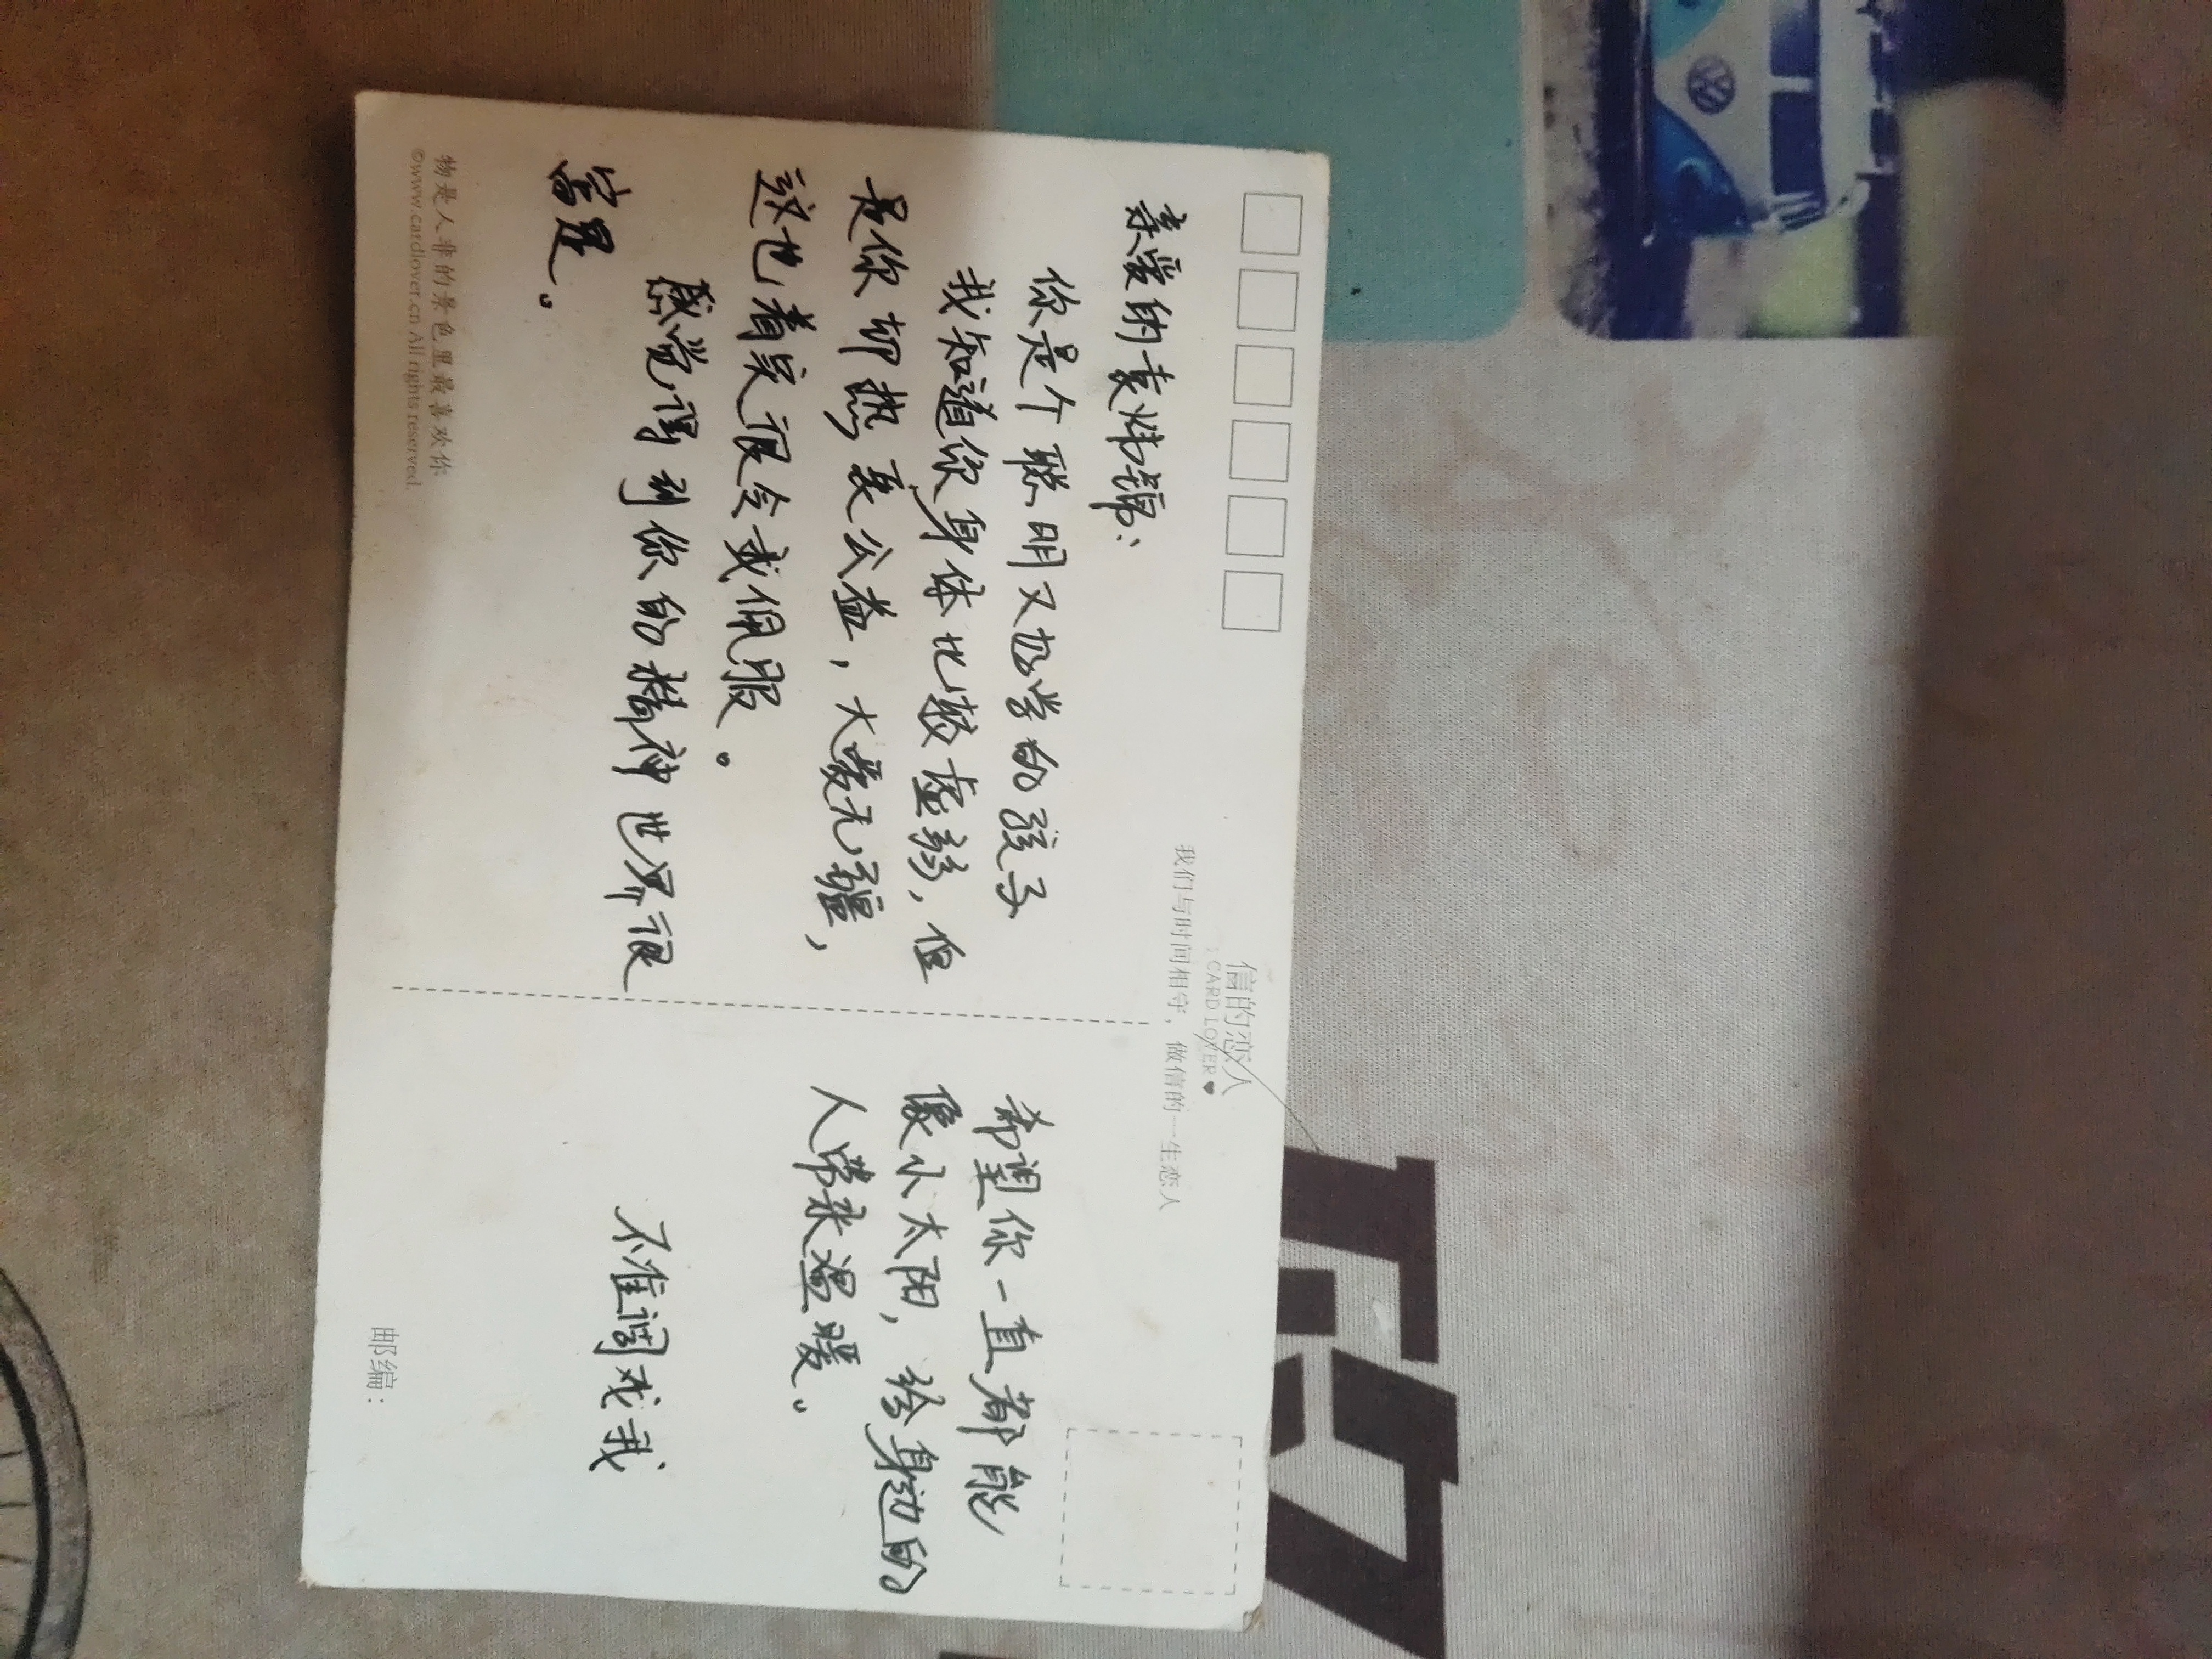 信的恋人
CARD LOVER♥
我们与时间相守，做信的一生恋人
亲爱的袁炜锦：
你是个聪明又好学的孩子
我知道你身体比较虚弱，但
是你却热衷公益，大爱无疆，
这也着实很令我佩服。
感觉得到你的精神世界很
富足。
希望你一直都能
像小太阳，给身边的
人带来温暖。
不准调戏我
物是人非的景色里最喜欢你
©www.cardlover.cn All rights reserved.
邮编：